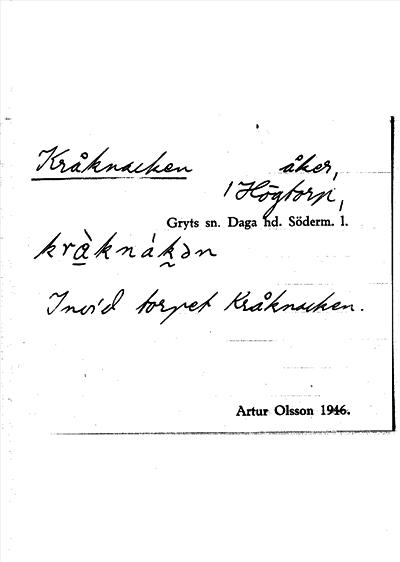 Kråknacken åker,
/ Högtorp,
Gryts sn. Daga hd. Söderm. l.
krà̱knák̰ən
Invid torpet Kråknacken.
Artur Olsson 1946.